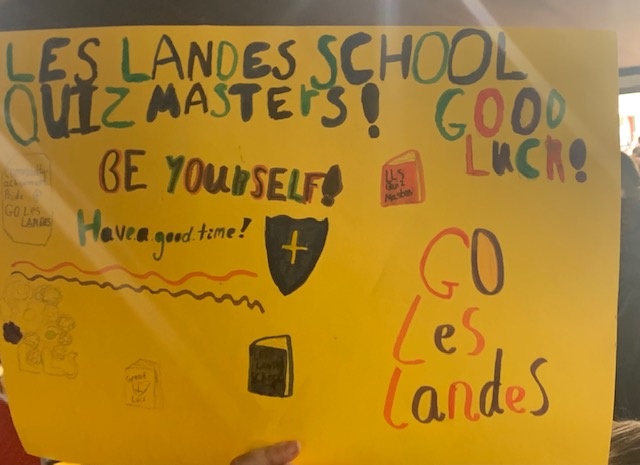 LES LANDES SCHOOL
QUIZ MASTERS! GOOD
LUCK!
BE YOURSELF!
LLS
Quiz
Masters
GO LES
LANDES
Have a good time!
GO
Les
Landes